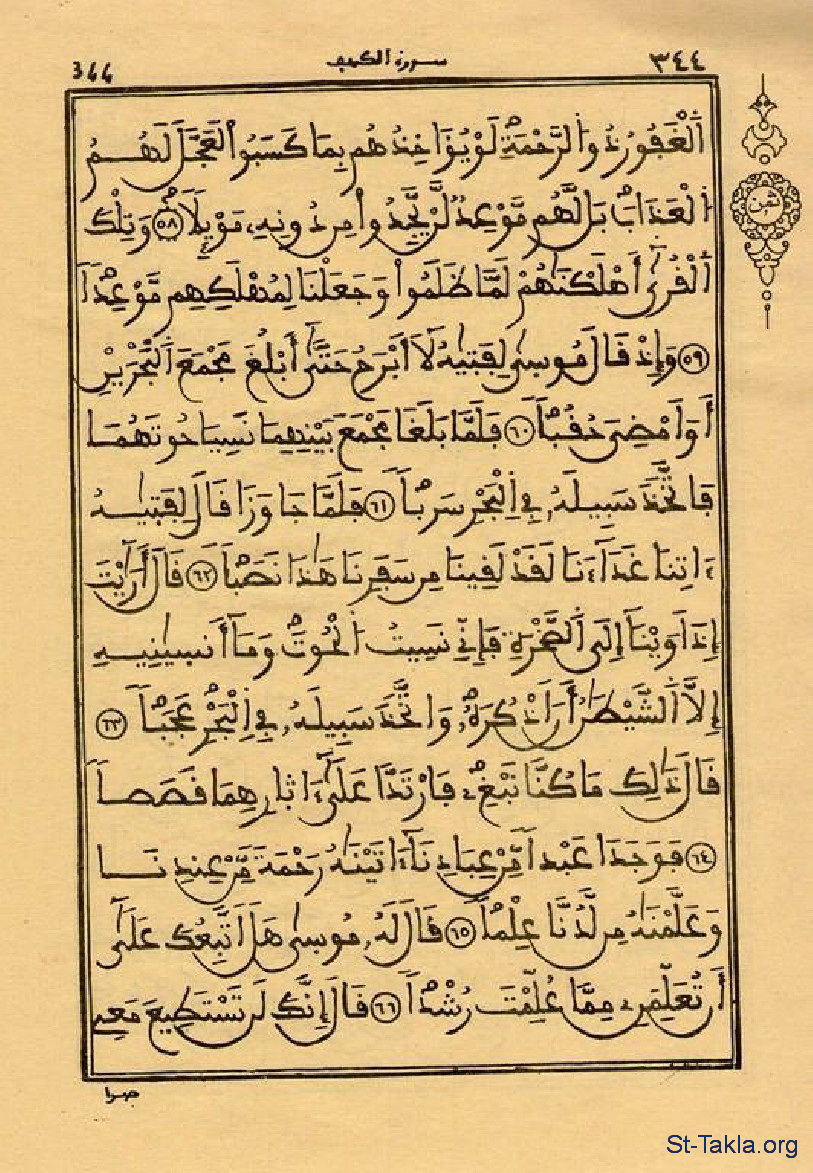 344 سورة الكهف ٣٤٤
اَ۬لْغَفُورُ ذُو اُ۬لرَّحْمَةِ لَوْ يُؤَاخِذُهُم بِمَا كَسَبُواْ لَعَجَّلَ لَهُمُ
اُ۬لْعَذَابَ بَل لَّهُم مَّوْعِدٌ لَّنْ يَّجِدُواْ مِن دُونِهِۦ مَوْئِلاٗ ٥٨ وَتِلْكَ
اَ۬لْقُر۪يٰٓ أَهْلَكْنَٰهُمْ لَمَّا ظَلَمُواْ وَجَعَلْنَا لِمُهْلَكِهِم مَّوْعِداٗ
٥٩ وَإِذْ قَالَ مُوس۪يٰ لِفَت۪يٰهُ لَآ أَبْرَحُ حَتَّيٰٓ أَبْلُغَ مَجْمَعَ اَ۬لْبَحْرَيْنِ
أَوَ اَمْضِيَ حُقُباٗ ٦٠ فَلَمَّا بَلَغَا مَجْمَعَ بَيْنِهِمَا نَسِيَا حُوتَهُمَا
فَاتَّخَذَ سَبِيلَهُۥ فِے اِ۬لْبَحْرِ سَرَباٗ ٦١ فَلَمَّا جَاوَزَا قَالَ لِفَت۪يٰهُ
ءَاتِنَا غَدَآءَنَا لَقَدْ لَقِينَا مِن سَفَرِنَا هَٰذَا نَصَباٗ ٦٢ قَالَ أَرَٰٓيْتَ
إِذَ اَوَيْنَآ إِلَى اَ۬لصَّخْرَةِ فَإِنِّے نَسِيتُ اُ۬لْحُوتَ وَمَآ أَنس۪يٰنِيهِ
إِلَّا اَ۬لشَّيْطَٰنُ أَنَ اَذْكُرَهُۥ وَاتَّخَذَ سَبِيلَهُۥ فِے اِ۬لْبَحْرِ عَجَباٗ ٦٣
قَالَ ذَٰلِكَ مَا كُنَّا نَبْغِۦ فَارْتَدَّا عَلَيٰٓ ءَاث۪ارِهِمَا قَصَصاٗ
٦٤ فَوَجَدَا عَبْداٗ مِّنْ عِبَادِنَآ ءَاتَيْنَٰهُ رَحْمَةٗ مِّنْ عِندِنَا
وَعَلَّمْنَٰهُ مِن لَّدُنَّا عِلْماٗ ٦٥ قَالَ لَهُۥ مُوس۪يٰ هَلَ اَتَّبِعُكَ عَلَيٰٓ
أَن تُعَلِّمَنِۦ مِمَّا عُلِّمْتَ رُشْداٗ ٦٦ قَالَ إِنَّكَ لَن تَسْتَطِيعَ مَعِے
صبرا
ثمن
St-Takla.org